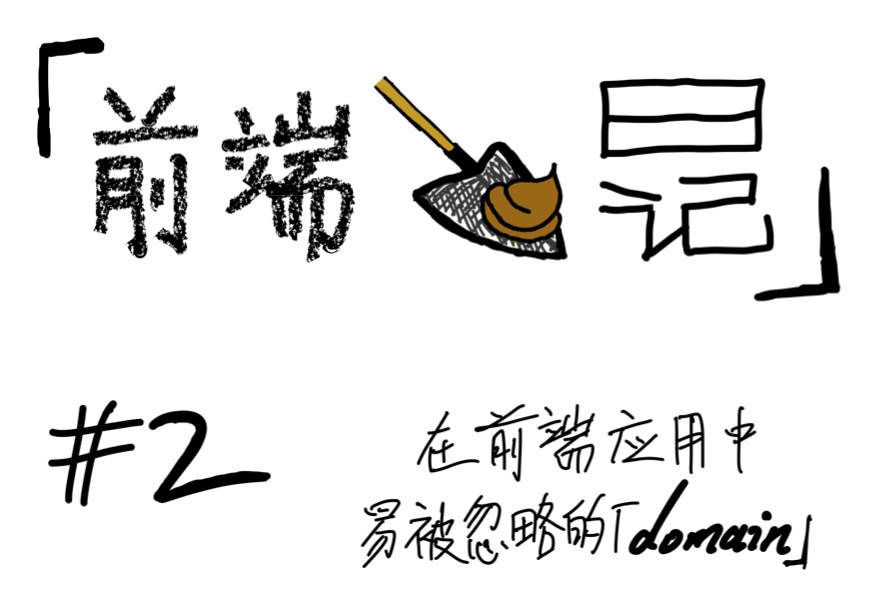 「前端日记」
#2
在前端应用中
易被忽略的「domain」